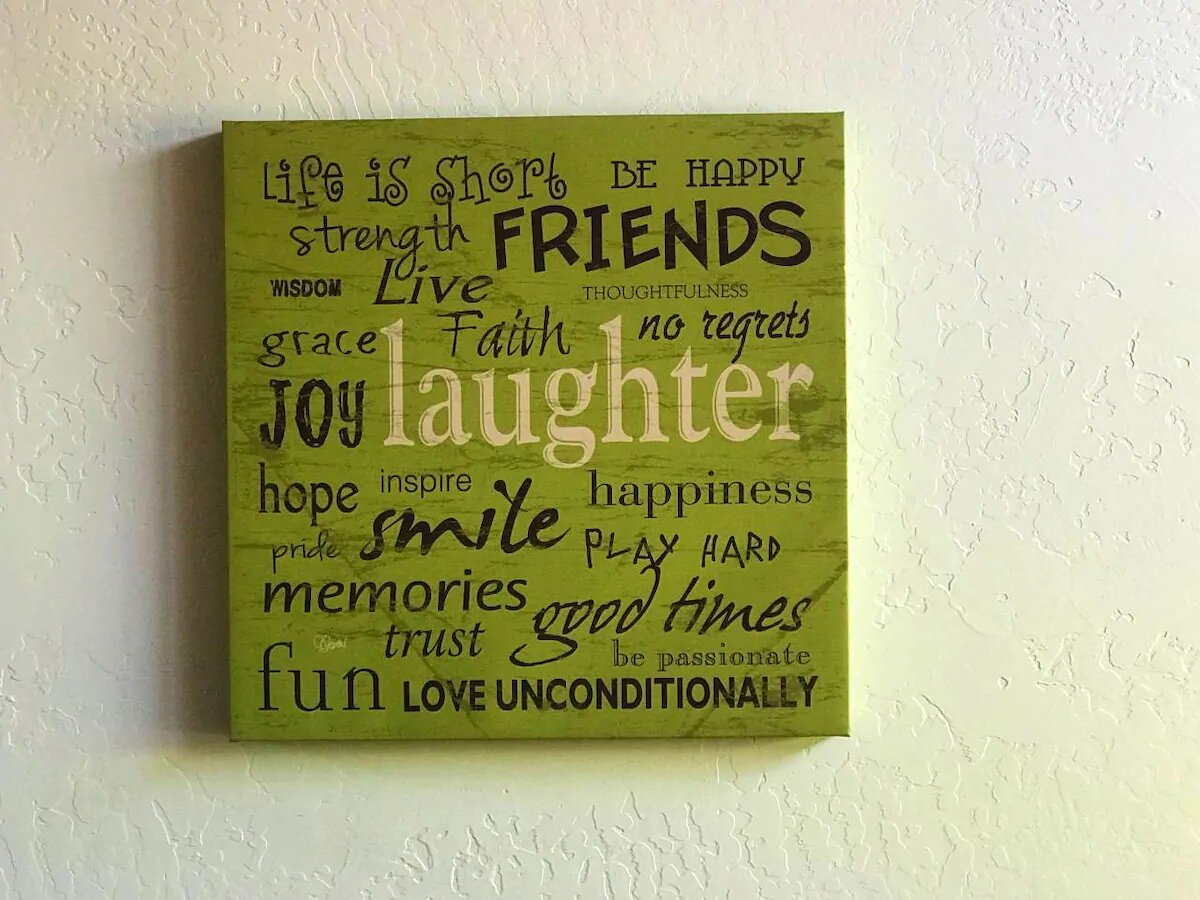 Life is Short BE HAPPY
strength FRIENDS
WISDOM Live THOUGHTFULNESS
grace Faith no regrets
JOY laughter
hope inspire happiness
pride smile PLAY HARD
memories good times
trust be passionate
fun LOVE UNCONDITIONALLY